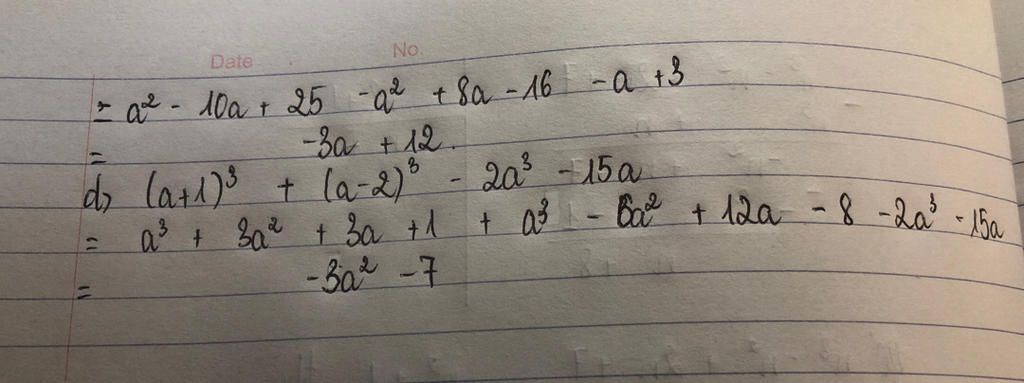 Date No.
= a² - 10a + 25 - a² + 8a - 16 - a + 3
= -3a + 12.
d) (a+1)³ + (a-2)³ - 2a³ - 15a
= a³ + 3a² + 3a + 1 + a³ - 6a² + 12a - 8 - 2a³ - 15a
= -3a² - 7